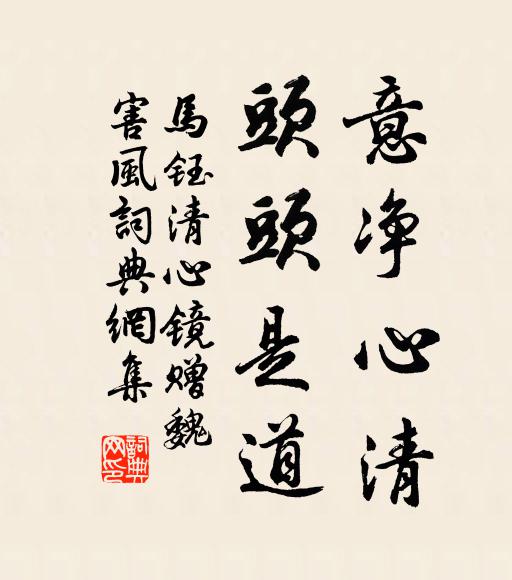 意净心清
頭頭是道
馬鈺清心镜赠魏
害風詞典網集
詞典网印